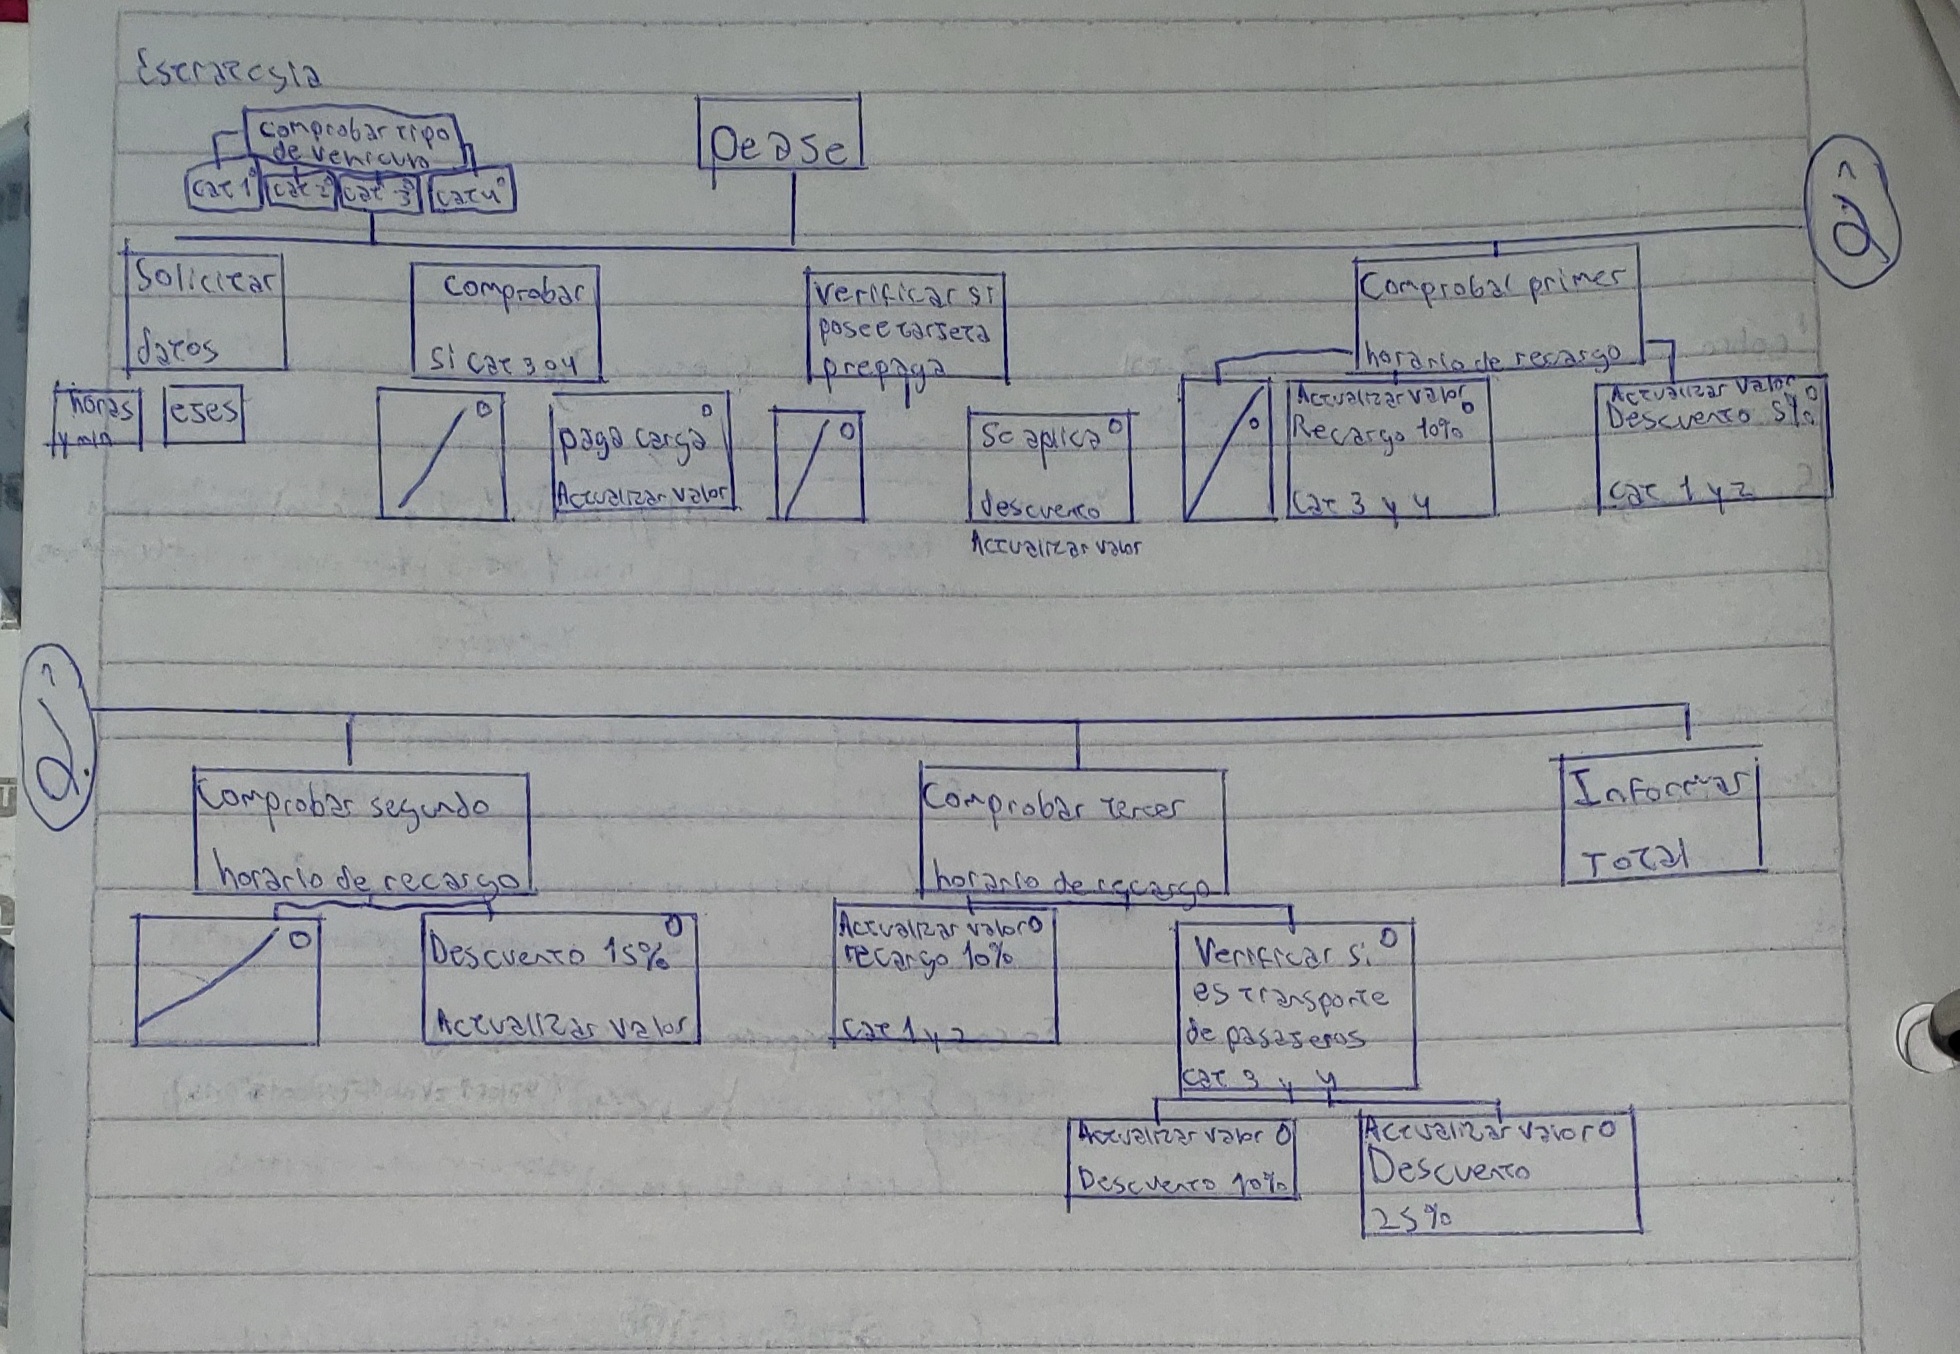 Estrategia
Comprobar tipo
de vehiculo
cat 1
cat 2
cat 3
cat 4
Peaje
Solicitar
datos
horas
y min
ejes
comprobar
si cat 3 o 4
paga carga
Actualizar valor
verificar si
posee tarjeta
prepaga
Se aplica
descuento
Actualizar valor
Comprobar primer
horario de recargo
Actualizar valor
Recargo 10%
Cat 3 y 4
Actualizar valor
Descuento 5%
Cat 1 y 2
Comprobar segundo
horario de recargo
Descuento 15%
Actualizar valor
Comprobar tercer
horario de recargo
Actualizar valor
recargo 10%
Cat 1 y 2
Verificar si
es transporte
de pasajeros
cat 3 y 4
Actualizar valor
Descuento 10%
Actualizar valor
Descuento
25%
Informar
Total